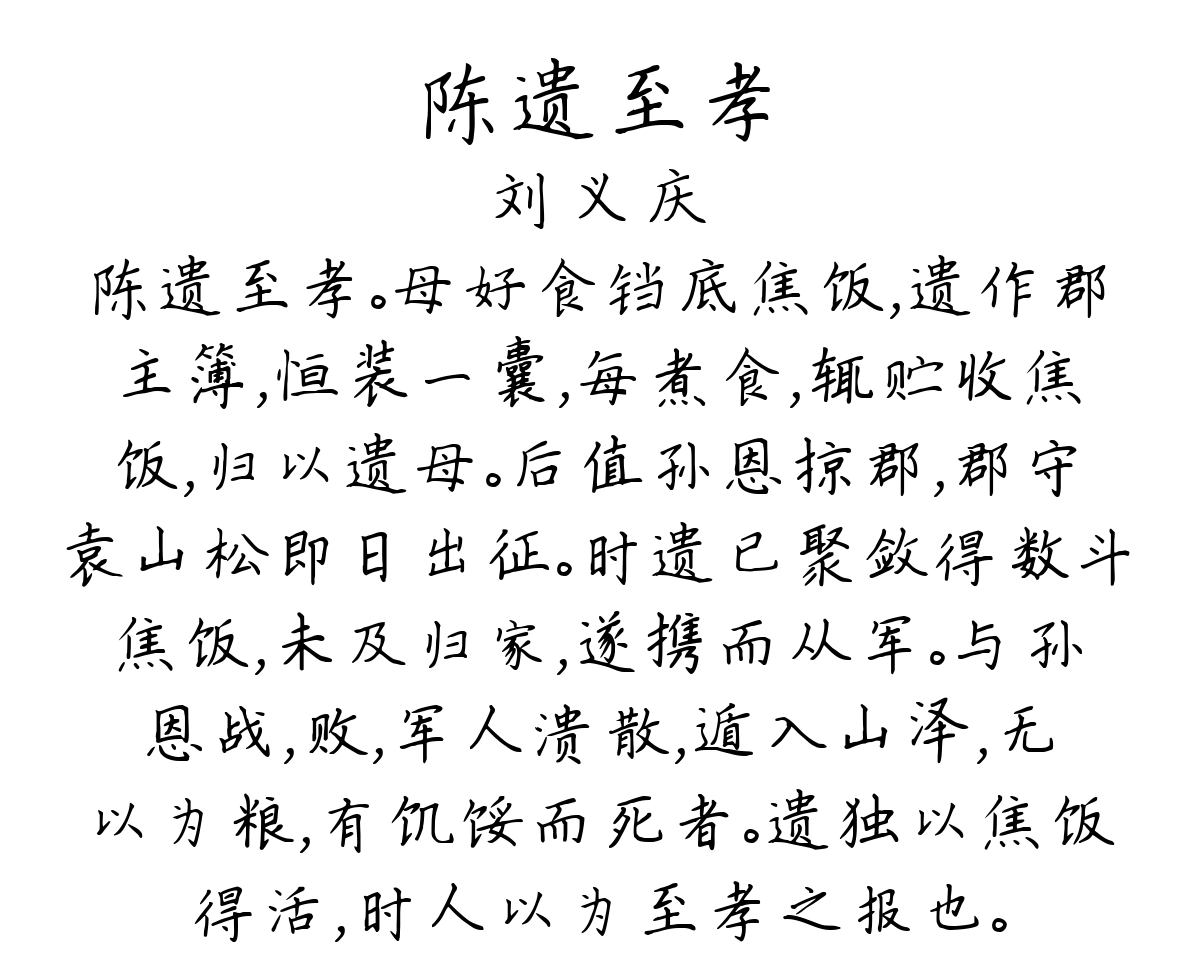 陈遗至孝
刘义庆
陈遗至孝。母好食铛底焦饭,遗作郡
主簿,恒装一囊,每煮食,辄贮收焦
饭,归以遗母。后值孙恩掠郡,郡守
袁山松即日出征。时遗已聚敛得数斗
焦饭,未及归家,遂携而从军。与孙
恩战,败,军人溃散,遁入山泽,无
以为粮,有饥馁而死者。遗独以焦饭
得活,时人以为至孝之报也。